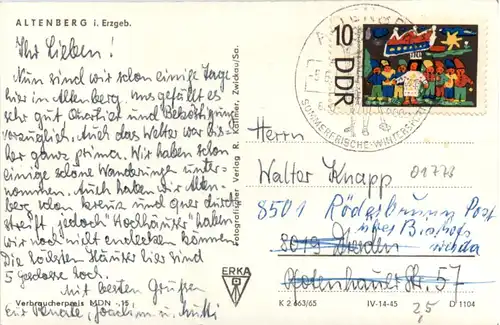 ALTENBERG i. Erzgeb.
Ihr Lieben!
Nun sind wir schon einige Tage
hier in Altenberg. Uns gefällt es
sehr gut. Quartier und Beköstigung
vorzüglich. Auch das Wetter war bis-
her ganz prima. Wir haben schon
einige schöne Wanderungen unter-
nommen. Auch haben wir Alten-
berg schon kreuz und quer durch-
streift, jedoch "Hochhäuser" haben
wir noch nicht entdecken können.
Die höchsten Häuser hier sind
5 Geschosse hoch.
Mit besten Grüßen
Eure Renate, Joachim u. Mutti
Verbraucherpreis MDN -,15
Fotografischer Verlag R. Kallmer, Zwickau/Sa.
ERKA
10
DDR
SOMMERFRISCHE - WINTERSPORT
Herrn
Walter Knapp
01773
8501 Rödersbrunn Post
über Bischofs
8019 Dresden
werda
Holenhauer Str. 57
K 2 663/65
IV-14-45
D 1104
2,5